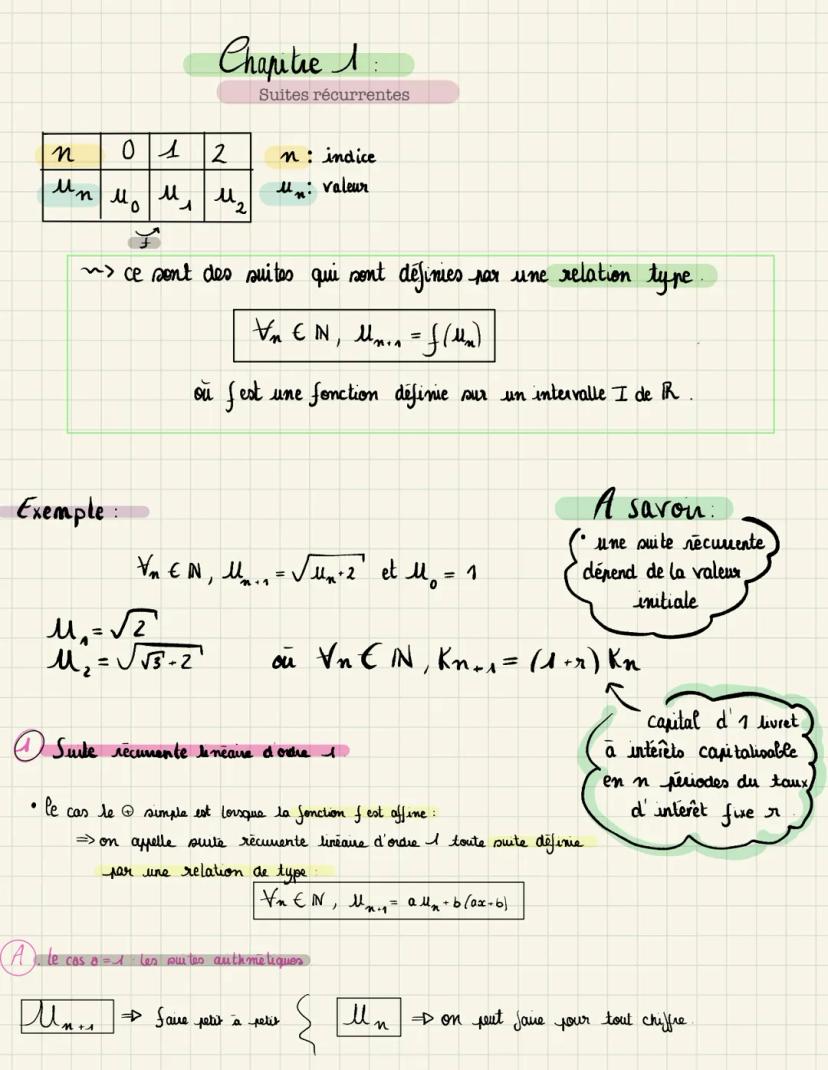 Chapitre 1 :
Suites récurrentes
n 0 1 2
Un U0 U1 U2
f
n : indice
Un : valeur
~> ce sont des suites qui sont définies par une relation type.
∀n ∈ ℕ, Un+1 = f(Un)
où f est une fonction définie sur un intervalle I de ℝ.
Exemple :
∀n ∈ ℕ, Un+1 = √(Un+2) et U0 = 1
U1 = √2
U2 = √(√3+2)
où ∀n ∈ ℕ, Kn+1 = (1+r) Kn
A savoir :
• une suite récurrente
dépend de la valeur
initiale
capital d'1 livret
à intérêts capitalisable
en n périodes du taux
d'intérêt fixe r
1 Suite récurrente linéaire d'ordre 1
• le cas le ⊕ simple est lorsque la fonction f est affine :
=> on appelle suite récurrente linéaire d'ordre 1 toute suite définie
par une relation de type :
∀n ∈ ℕ, Un+1 = aUn+b (ax+b)
A. le cas a=1 : les suites arithmétiques
Un+1 => faire petit à petit { Un => on peut faire pour tout chiffre.